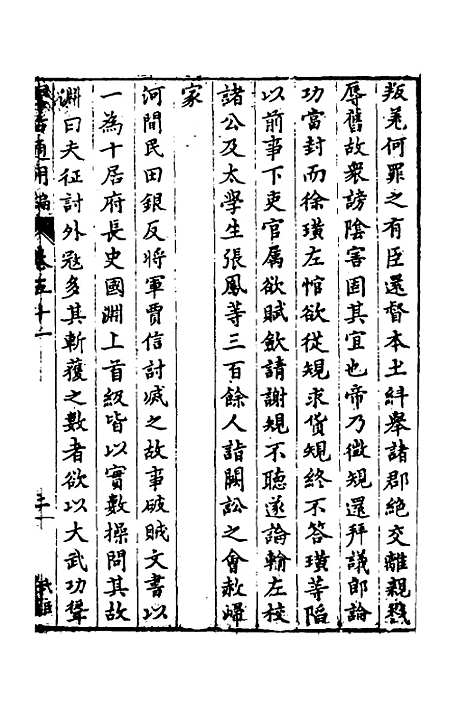 叛羌何罪之有臣還督本土糾舉諸郡絶交離親戮
辱舊故衆謗陰害固其宜也帝乃徴規還拜議郎論
功當封而徐璜左悺欲從規求貨規終不答璜等陷
以前事下吏官属欲賦歛請謝規不聽遂論輸左校
諸公及太學生張鳳等三百餘人詣闕訟之會赦歸
家
河間民田銀反將軍賈信討滅之故事破賊文書以
一為十居府長史國淵上首級皆以實數操問其故
淵曰夫征討外寇多其斬獲之數者欲以大武功聳
卷五十一